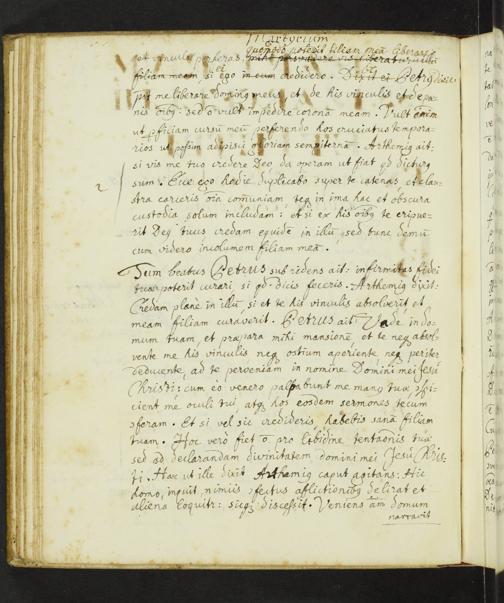 Martyrium
quomodo poterit filiam meã liberare
et vincula preferas,
filiam meam, si et ego in eum credidero. Dixit ei Petrus:
me liberare dominus meus, et de his vinculis et de pœ-
nis oĩbꝫ: sed õ vult impedire coronã meam. Vult enim
ut ꝑficiam cursũ meũ perferendo hos cruciatus tempora-
rios ut possim adipisci gloriam sempiternã. Arthemiꝰ ait:
si vis me tuo credere Deo da operam ut fiat qd dictus
sum. Ecce ego hodie duplicabo super te catenas, et clau-
stra carceris oĩa comuniam, teqꝫ in ima hac et obscura
custodia solum includam: et si ex his oĩbꝫ te eripue-
rit Deꝰ tuus credam equidẽ in illũ, sed tunc demũ
cum videro incolumem filiam meã.
Tum beatus Petrus subridens ait: infirmitas fidei
tuæ poterit curari, si qd dicis feceris. Arthemiꝰ dixit:
Credam planè in illũ si et te his vinculis absolverit et
meam filiam curaverit. Petrus ait: Vade in do-
mum tuam, et præpara mihi mansionẽ et te neqꝫ absol-
vente me his vinculis neqꝫ ostium aperiente neqꝫ pariter
deducente, ad te perveniam in nomine Domini mei Jesu
Christi: cum eò venero palpabunt me manꝰ tuæ, ꝓspi-
cient me oculi tui, atqꝫ hos eosdem sermones tecum
ꝓferam. Et si vel sic credideris, habebis sanã filiam
tuam. Hoc verò fiet õ pro libidine tentaõnis tuæ
sed ad declarandam divinitatem domini mei Jesu Chris-
ti. Hæc ut ille dixit Arthemiꝰ caput agitans: Hic
homo, inquit, nimiis ꝓfectus afflictionibꝫ delirat et
aliena loquitr: sicqꝫ discessit. Veniens aũt domum
narravit